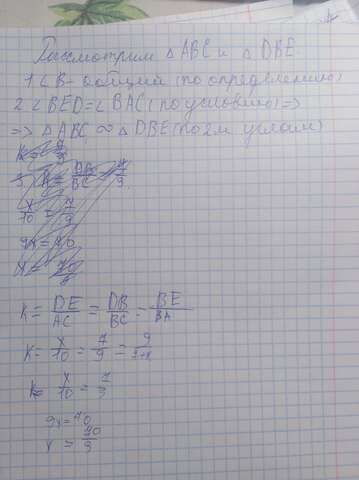 Рассмотрим △ABC и △DBE
1 ∠B - общий (по определению)
2 ∠BED = ∠BAC (по условию) =>
=> △ABC ∞ △DBE (по 2м углам)
K = DE/AC = DB/BC = BE/BA
K = x/10 = 7/9 = 9/9+x
K = x/10 = 7/9
9x = 70
x = 70/9